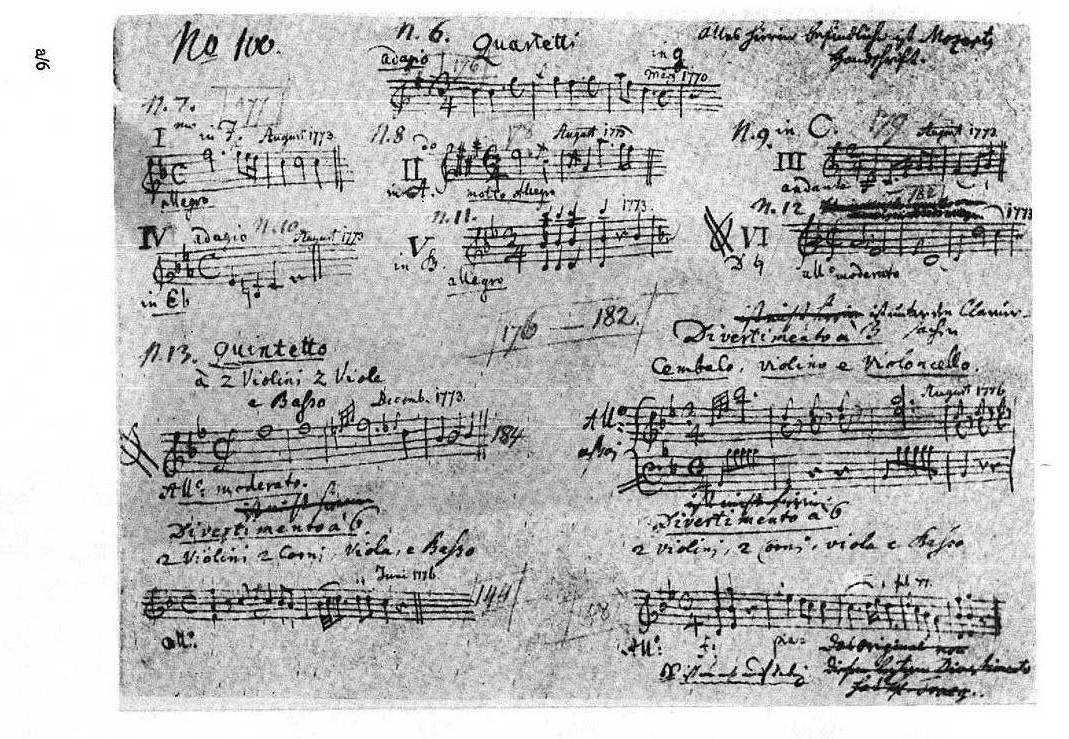 a/6
No 100.
N. 6. Quartetti
Alles hierin befindliche ist Mozarts
Handschrift.
adagio 176
in g
1770
N. 7. 177
I in F. August 1773
allegro
N. 8 178 August
II
in A. molto Allegro
N. 9. in C. 179 August 1773
III
andante
IV adagio N. 10. August 1773
in Eb
N. 11. 1773
V
in B.
allegro
N. 12 1773
VI
allo moderato
176 — 182.
N. 13. Quintetto
à 2 Violini 2 Viole
e Basso
Decemb. 1773.
184
Allo: moderato.
ist nicht hierin ist unter den Clavier-
sachen
Divertimento à 3
Cembalo, violino e Violoncello.
Allo: August 1776
assai
ist nicht hierin
Divertimento à 6
2 Violini 2 Corni, Viola, e Basso
Juni 1776.
144
allo:
ist nicht hierin
Divertimento à 6
2 violini, 2 Corni, viola e Basso
Allo: f: pia:
das Original von
diesem Divertimento